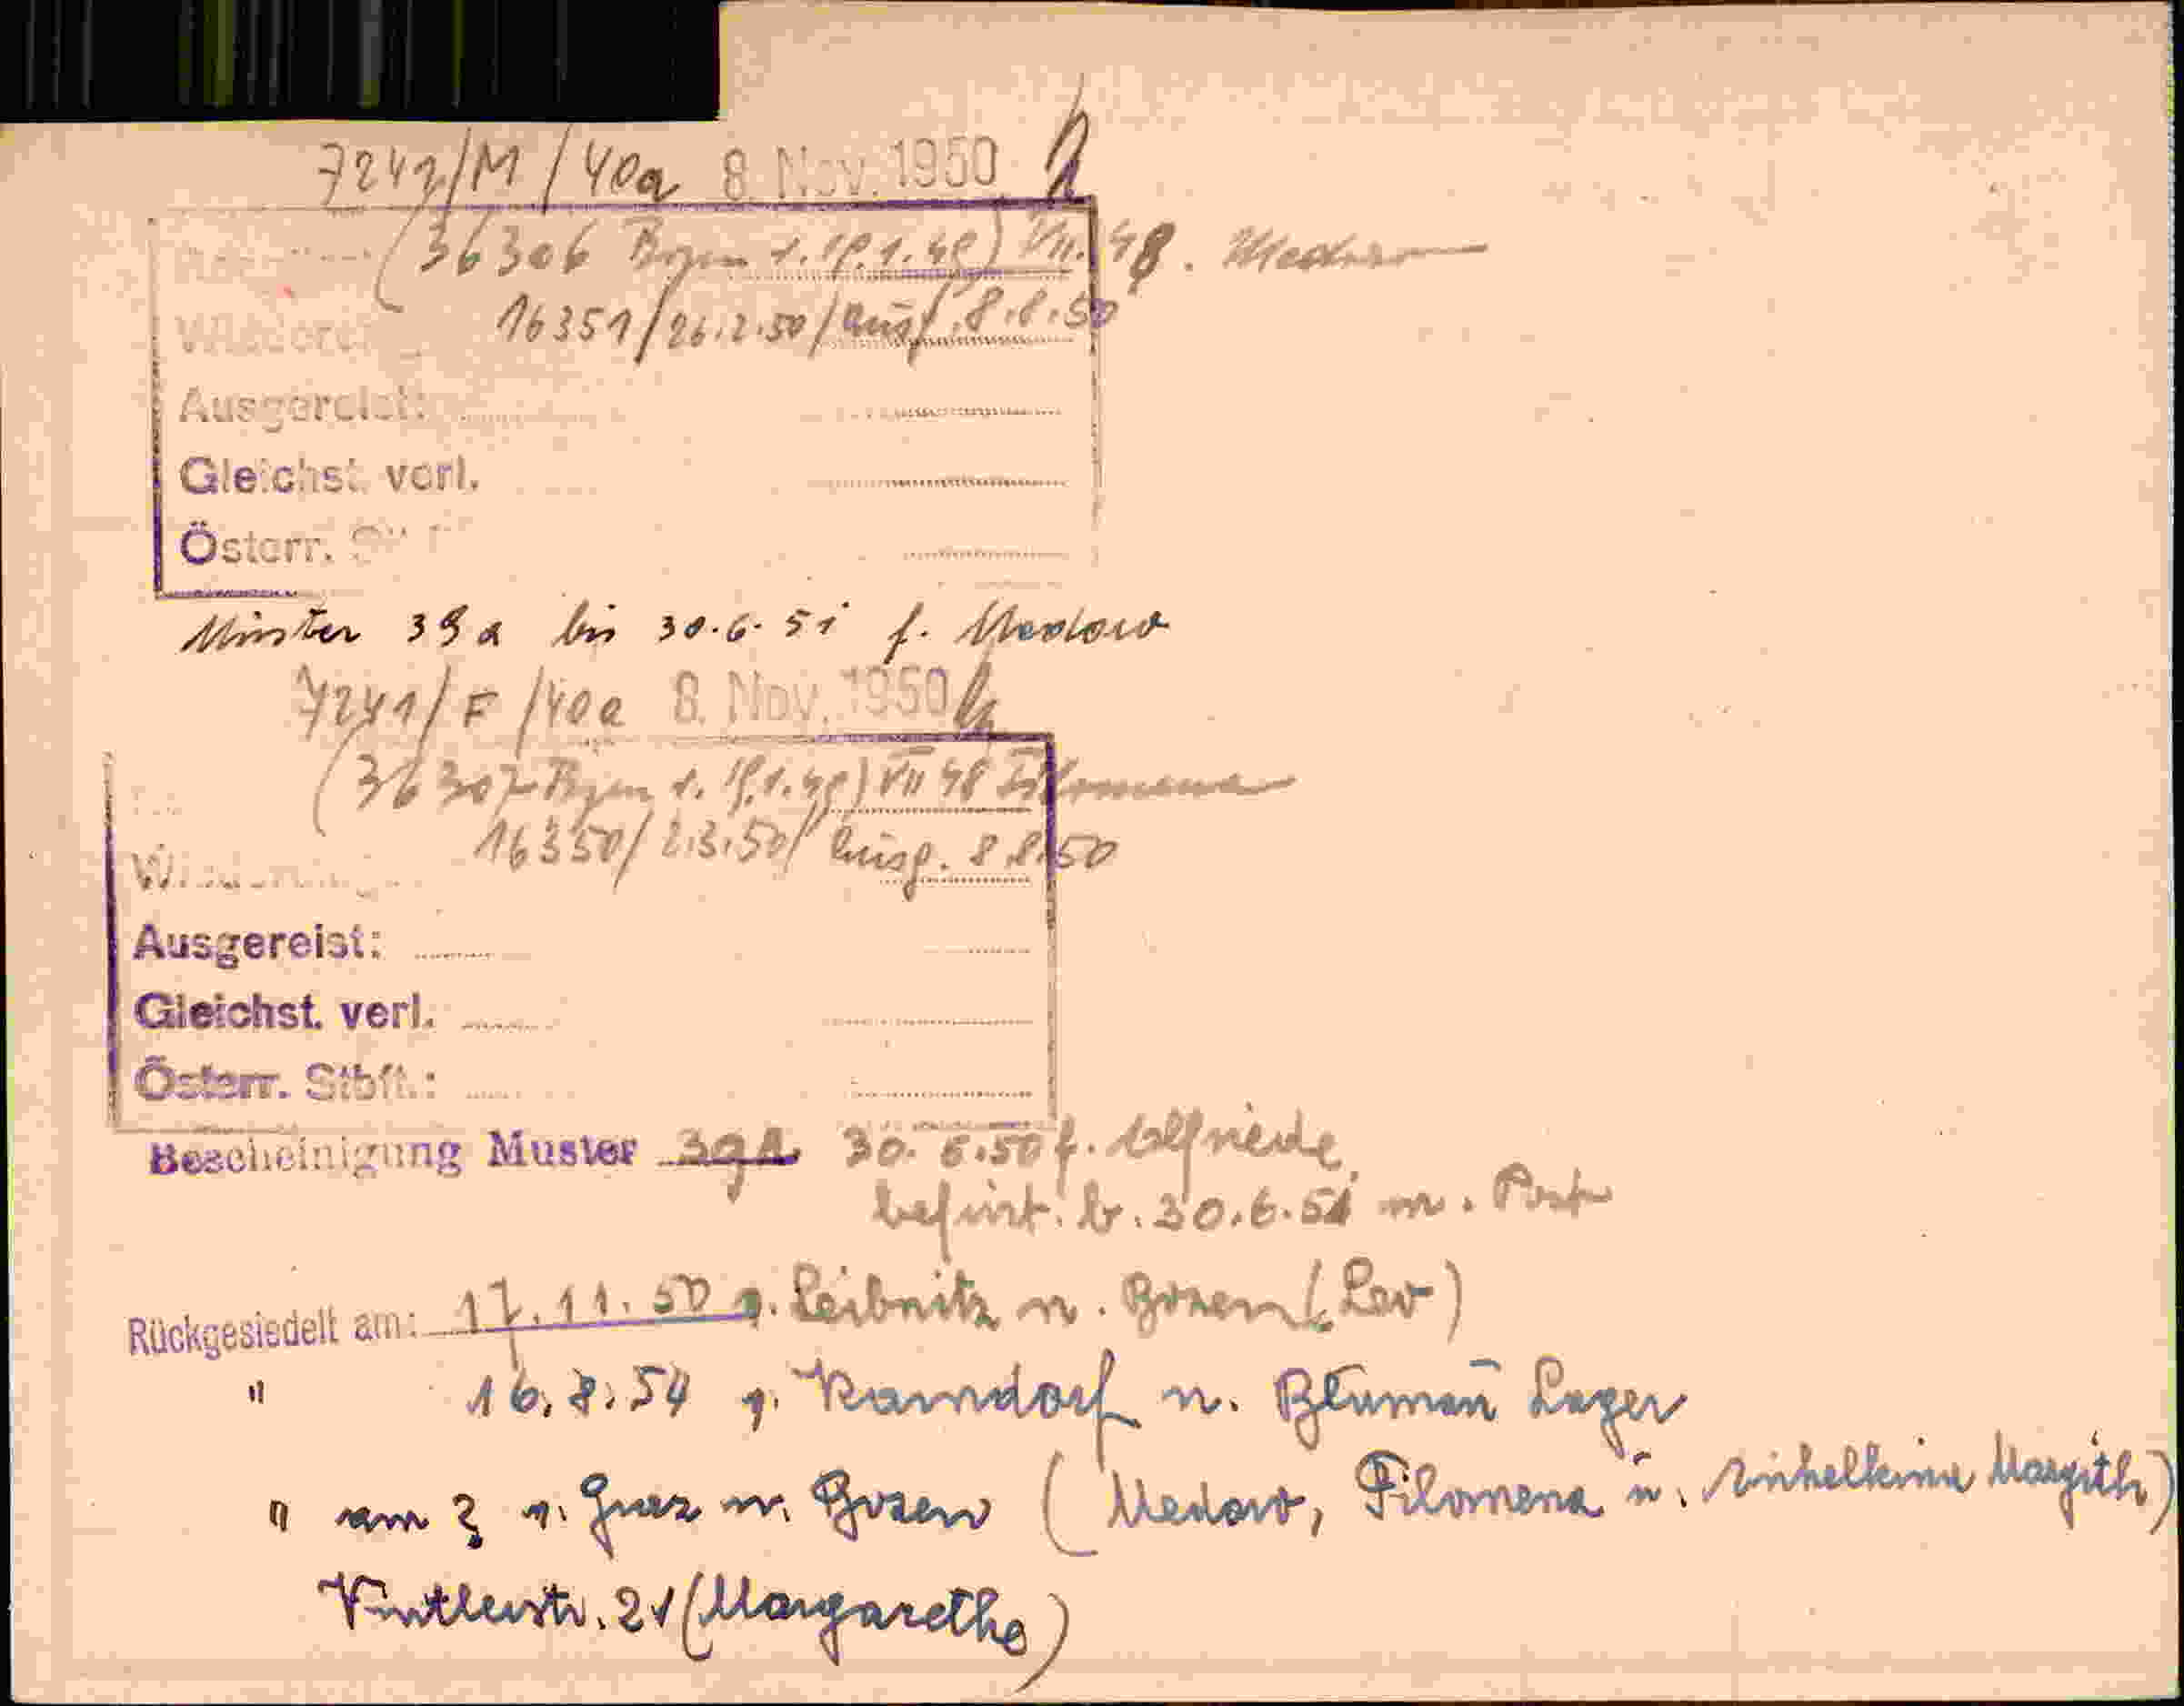 7241/M/40a 8. Nov. 1950
(36306 Bozen v. 19.1.49) VII. 48. Medardo
16351/26.2.50/Ausg. 8.8.50
Ausgereist:
Gleichst. verl.
Österr.
Muster 39a bis 30.6.51 f. Medard
7241/F/40a 8. Nov. 1950
(36307 Bozen v. 19.1.49) VII 48 Filomena
16350/2.3.50/Ausg. 8.8.50
Ausgereist:
Gleichst. verl.
Österr. Stbft.:
Bescheinigung Muster 39a 30.6.50 f. Elfriede
befürt. b. 30.6.51 m. Post
Rückgesiedelt am: 17.11.50 v. Leibnitz n. Bozen (Leo)
" 16.8.54 v. Kaindorf n. Blumau Lager
" am ? v. Graz n. Bozen (Medard, Filomena u. Enkelkind Margith)
Vintlerstr. 21 (Margarethe)